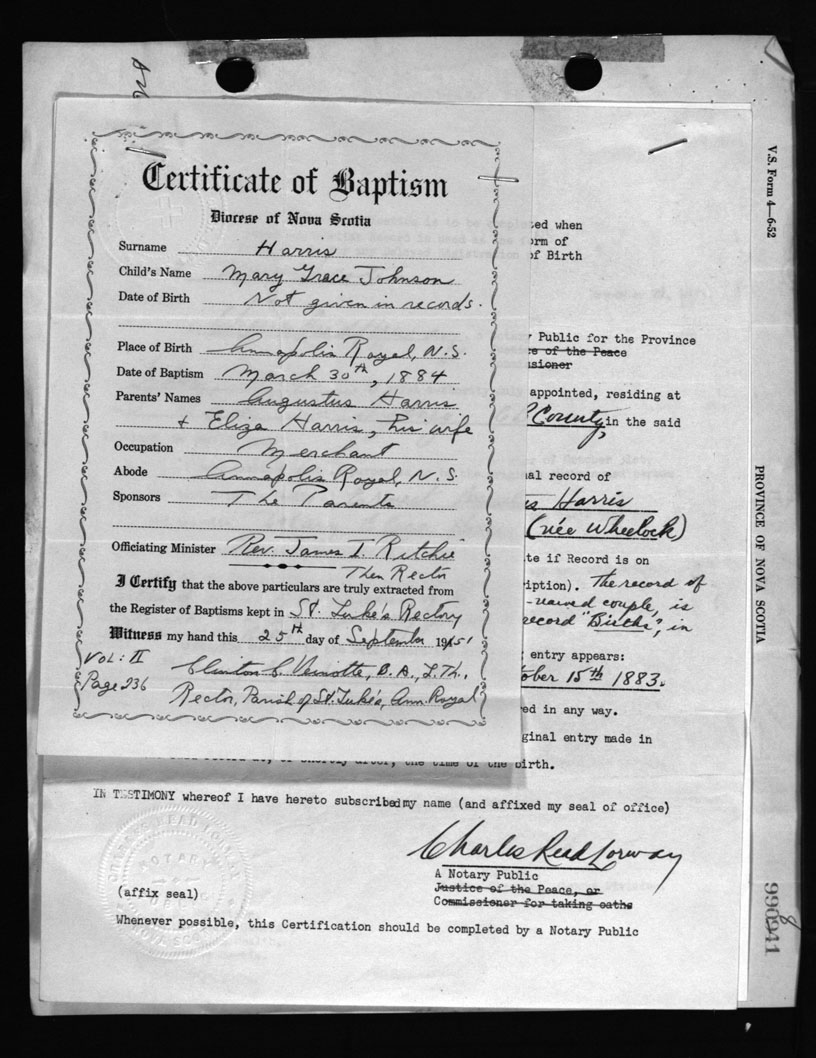 Certificate of Baptism
Diocese of Nova Scotia
Surname Harris
Child's Name Mary Grace Johnson
Date of Birth Not given in records.
Place of Birth Annapolis Royal, N.S.
Date of Baptism March 30th, 1884
Parents' Names Augustus Harris
+ Eliza Harris, his wife
Occupation Merchant
Abode Annapolis Royal, N.S.
Sponsors The Parents
Officiating Minister Rev. James I. Ritchie
Then Rector
I Certify that the above particulars are truly extracted from
the Register of Baptisms kept in St. Luke's Rectory
Witness my hand this 25th day of September 1951
Vol: II
Page 236
Clinton C. B.A., L.Th.,
Rector, Parish of St. Luke's, Ann. Royal
ed when
orm of
of Birth
Public for the Province
of the Peace
appointed, residing at
County, in the said
al record of
Harris
(née Wheelock)
te if Record is on
iption). The record of
-named couple, is
record "Births", in
entry appears:
ober 15th 1883.
ed in any way.
ginal entry made in
or shortly after, the time of the birth.
IN TESTIMONY whereof I have hereto subscribed my name (and affixed my seal of office)
Charles Read Lorway
A Notary Public
Justice of the Peace, or
Commissioner for taking oaths
(affix seal)
Whenever possible, this Certification should be completed by a Notary Public
V.S. Form 4—6-52
PROVINCE OF NOVA SCOTIA